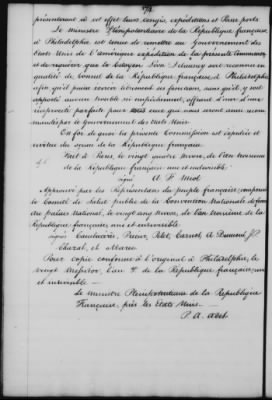 présentaront à cet effet leurs congés, expéditions et Passe ports
Le ministre Plénipotentiaire de la République française
à Philadelphie est tenu de remettre au Gouvernement des
Etats Unis de l'amérique expédition de la présente Commission
et de requérir que le citoyen Léon Delaunay soit reconnu en
qualité de Consul de la République française, à Philadelphie
afin qu'il puisse exercer librement ses fonctions, sans qu'il y soit
apporté aucun trouble ni empêchement, offrant d'user d'une
réciprocité parfaite pour ceux qui nous seront ainsi recom-
mandés par le Gouvernement des Etats Unis
En foi de quoi la présente Commission est expédiée et
revêtue du sceau de la République française.
Fait à Paris, le vingt quatre nivose, de l'an troisieme
de la République française une et indivisible.
signé A. F. Miot
Approuvé par les Représentans du peuple français, composant
le Comité de Salut public de la Convention Nationale, à Paris
au palais National, le vingt cinq nivose, de l'an troisieme de la
République française, une et indivisible
signés Cambacérès, Prieur, Pelet, Carnot, A Dumont, J. P.
Chazal, et Marec
Pour copie conforme à l'original à Philadelphie, le
vingt Messidor, l'an 3e de la République française, une
et indivisible —
Le ministre Plénipotentiaire de la République
Française, près les Etats Unis —
P. A. adet